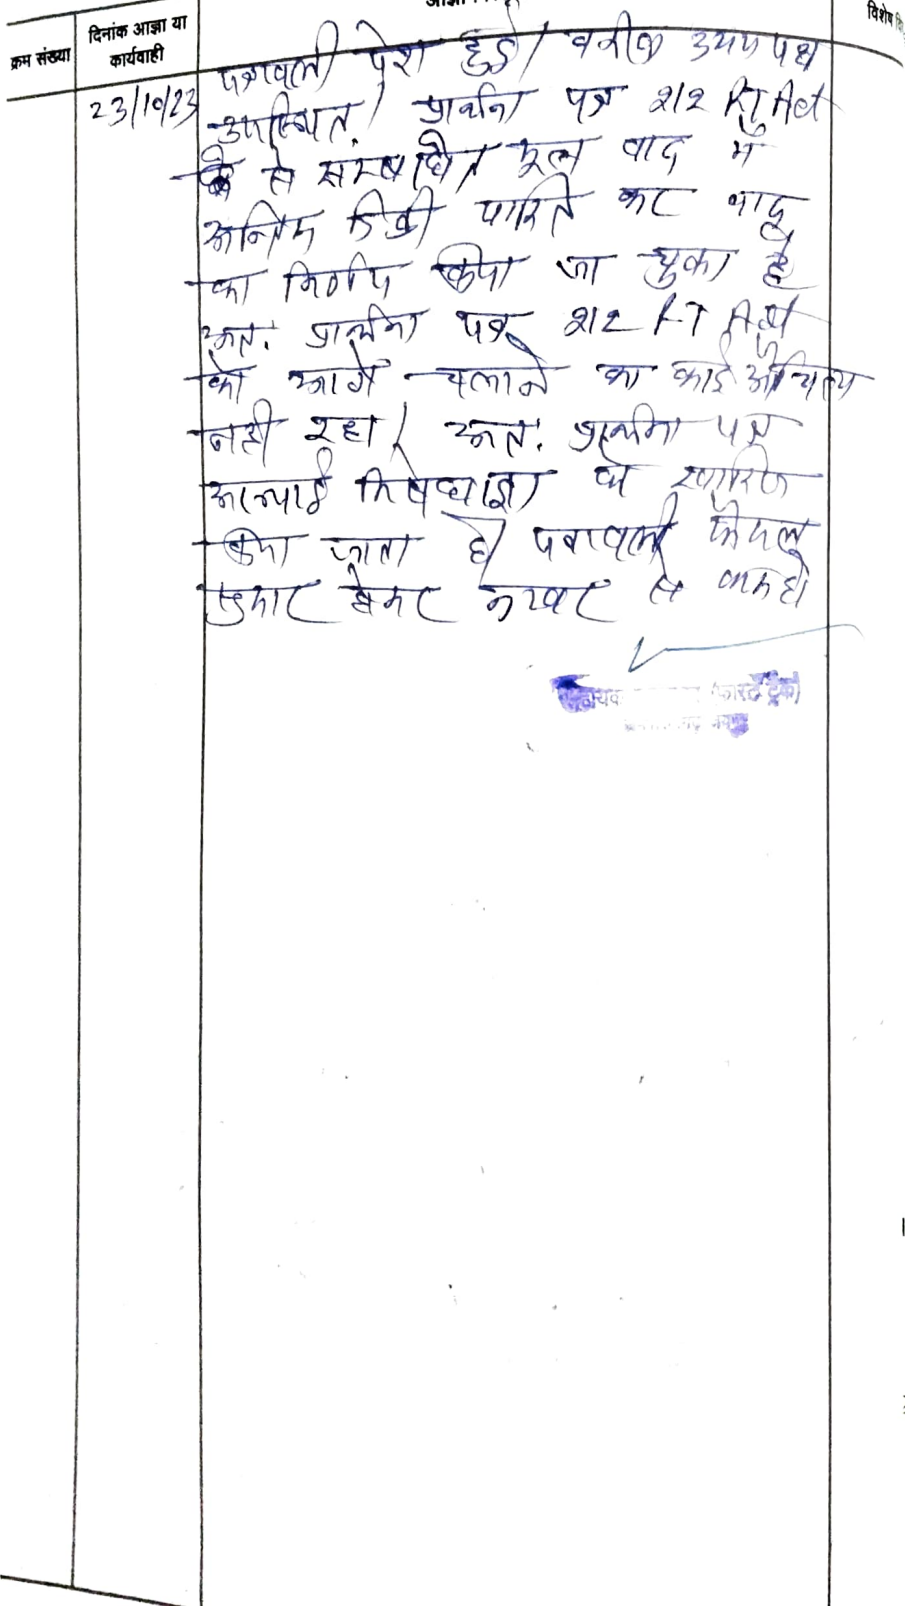 क्रम संख्या
दिनांक आज्ञा या
कार्यवाही
विशेष
23/10/23
पत्रावली पेश हुई। वकील उभय पक्ष
उपस्थित। प्रार्थना पत्र 212 RT Act
से सम्बंधित मूल वाद में
अन्तिम डिक्री पारित कर वाद
का निर्णय किया जा चुका है
अतः प्रार्थना पत्र 212 RT Act
को आगे चलाने का कोई औचित्य
नही रहा। अतः प्रार्थना पत्र
अस्थाई निषेधाज्ञा को खारिज
किया जाता है। पत्रावली फैसल
शुमार होकर नम्बर से कम हो
(फास्ट ट्रेक)